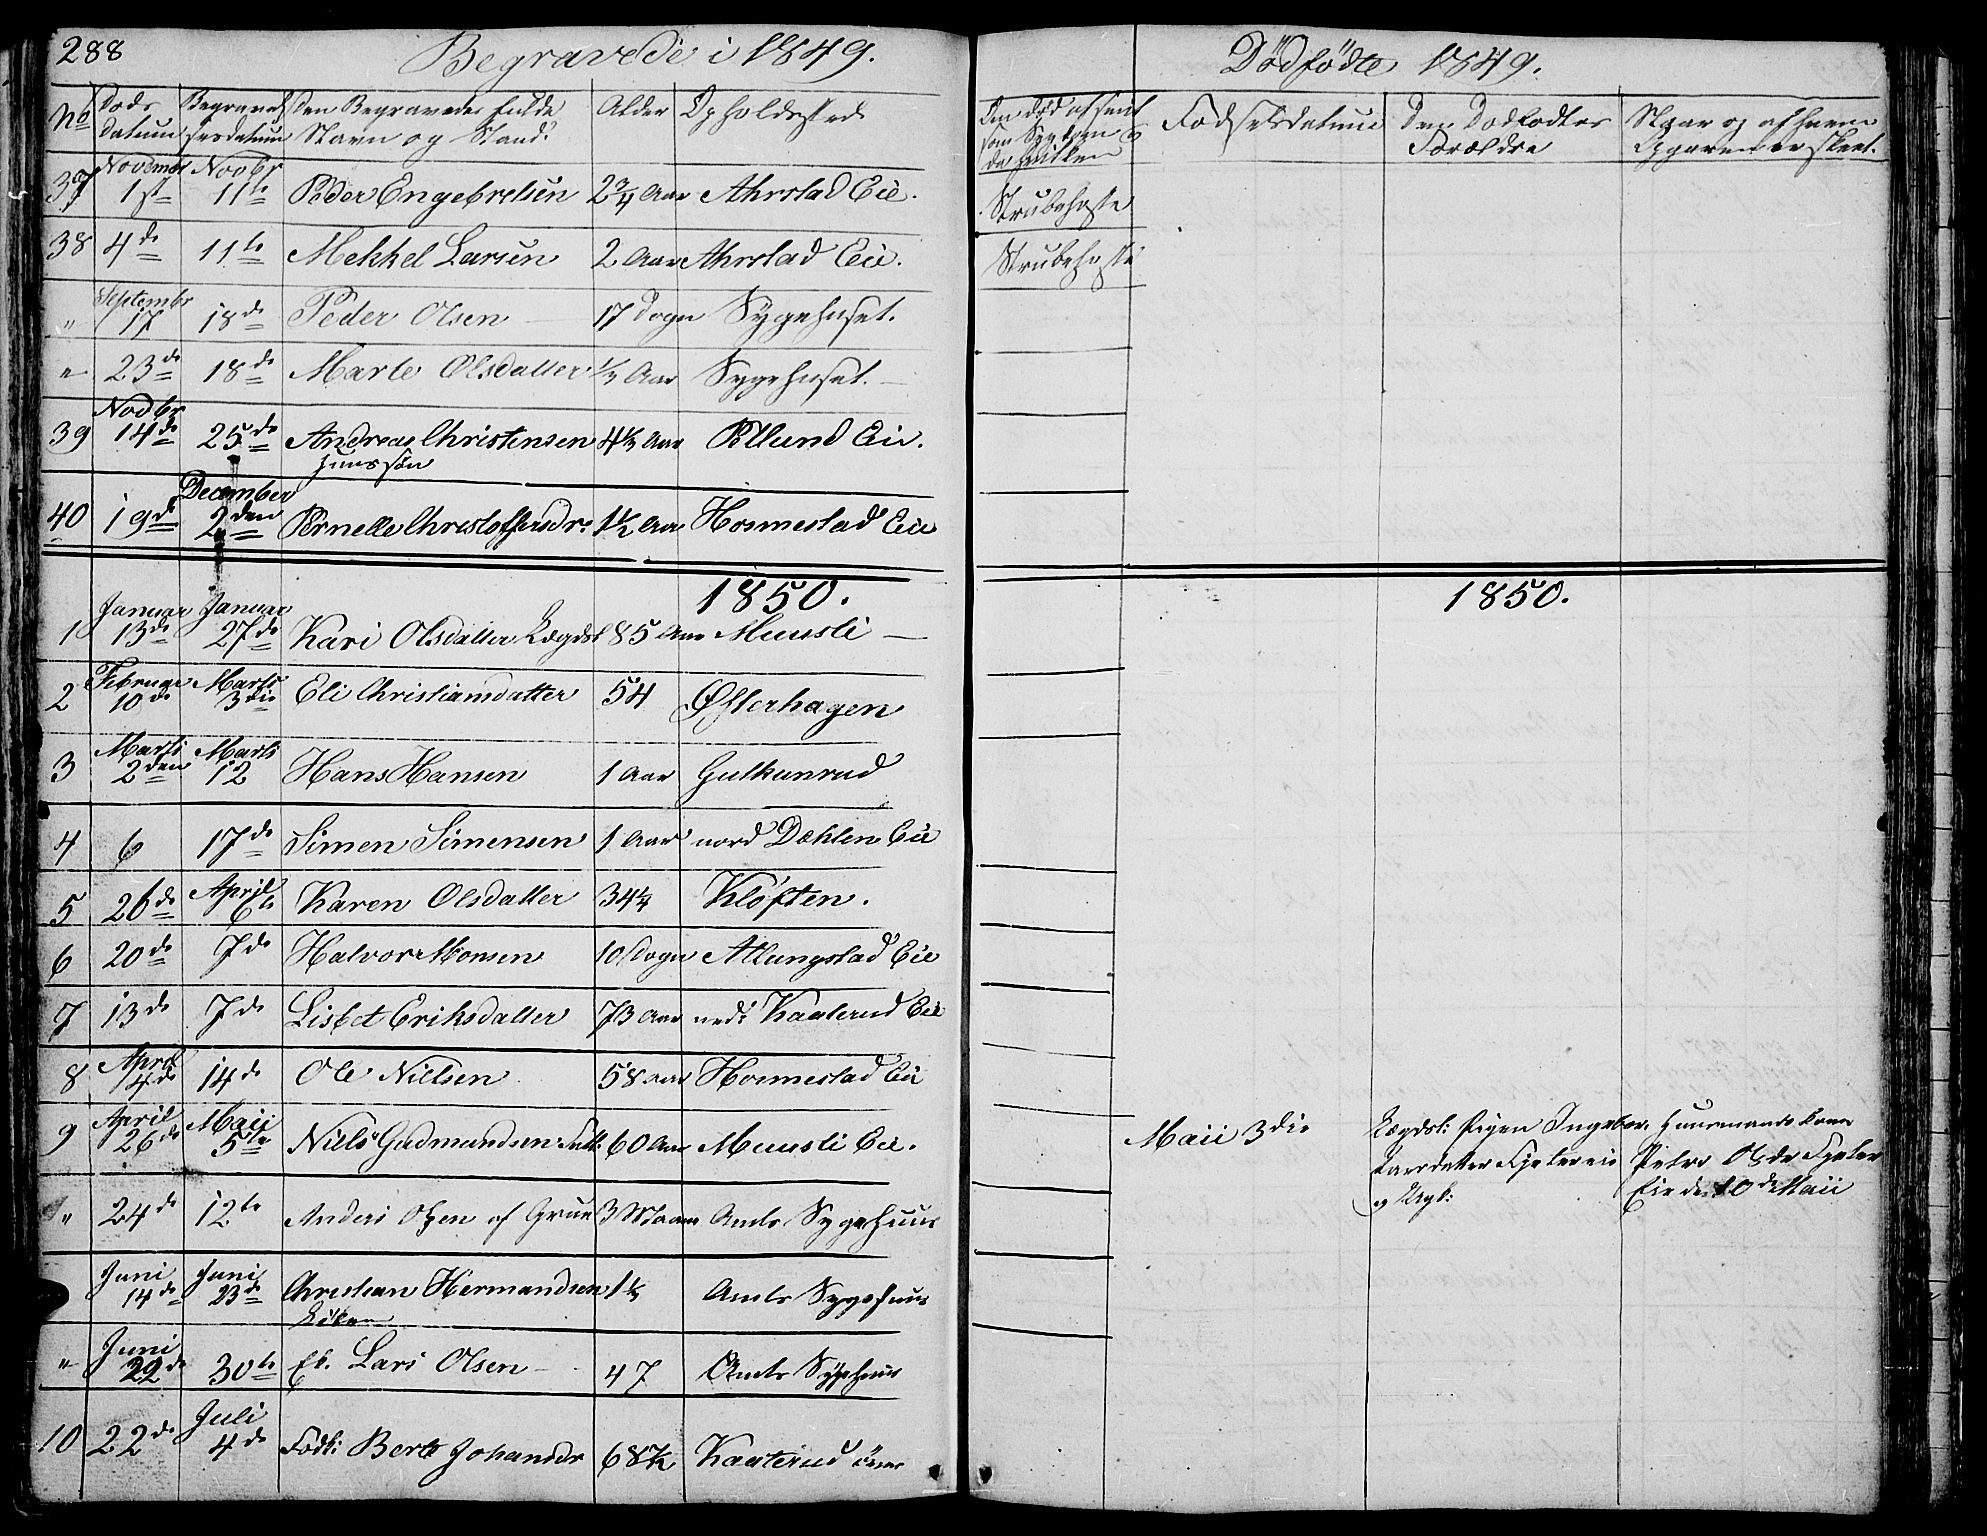 288
Begravede i 1849.
No Døds datum Begravelsesdatum Den Begravedes fulde Navn og Stand. Alder Opholdssted
37 Novembr 1ste Novbr 11te Peder Engebretsen 2 3/4 Aar Ahrstad Eie.
38 4de 11te Mekkel Larsen 2 Aar Ahrstad Eie.
" Septembr 17 18de Peder Olsen — 17 Dogn Sygehuset.
" 23de 18de Marte Olsdatter 1/2 Aar Sygehuset. —
39 Novbr 14de 25de Andreas Christensen 4 1/2 Aar Atlund Eie.
huussøn
40 19de December 2den Pernelle Christoffersdr. 1 1/2 Aar Hommestad Eie
1850.
1 Januar 13de Januar 27de Kari Olsdatter Lægdsl 85 Aar Muusli —
2 Februar 10de Marts 3die Eli Christiansdatter 54 Østerhagen
3 Marts 2den Marts 12 Hans Hansen 1 Aar Gulkunrud
4 6 17de Simen Simensen 1 Aar nord Dæhlen Eie
5 26de April 6te Karen Olsdatter 34 1/4 Kløften.
6 20de 7de Halvor Monsen 10 Dogn Atlungstad Eie
7 13de 7de Lisbet Eriksdatter 73 Aar ned: Kaaterud Eie
8 April 14de 14de Ole Nielsen 58 Aar Hommestad Eie
9 April 26de Maii 5te Niels Gudmundsen 60 Aar Muusli Eie.
" 24de 12te Anders Olsen af Grue 3 Maan Amts Sygehuus
Juni 14de Juni 23de Christian Hermandsen 1 1/2 Amts Sygehuus
Løken
" Juni 22de 30te Lars Olsen — 47 Amts Sygehuus
10 22de Juli 4de Fodk: Berte Johansdr 68 1/2 Kaaterud
Dødfødte 1849.
Om død af smitsom Sygdom og da hvilken Fødselsdatum Den Dødfødtes Forældre Naar og af hvem Opgaven er skeet.
Strubehoste
Strubehoste
1850.
Maii 3die
Lægdsl: Pigen Ingebor
Larsdatter Eie
og Ugk:
Huusmands Kone
Petra Olsdr
Eie den 10de Maii